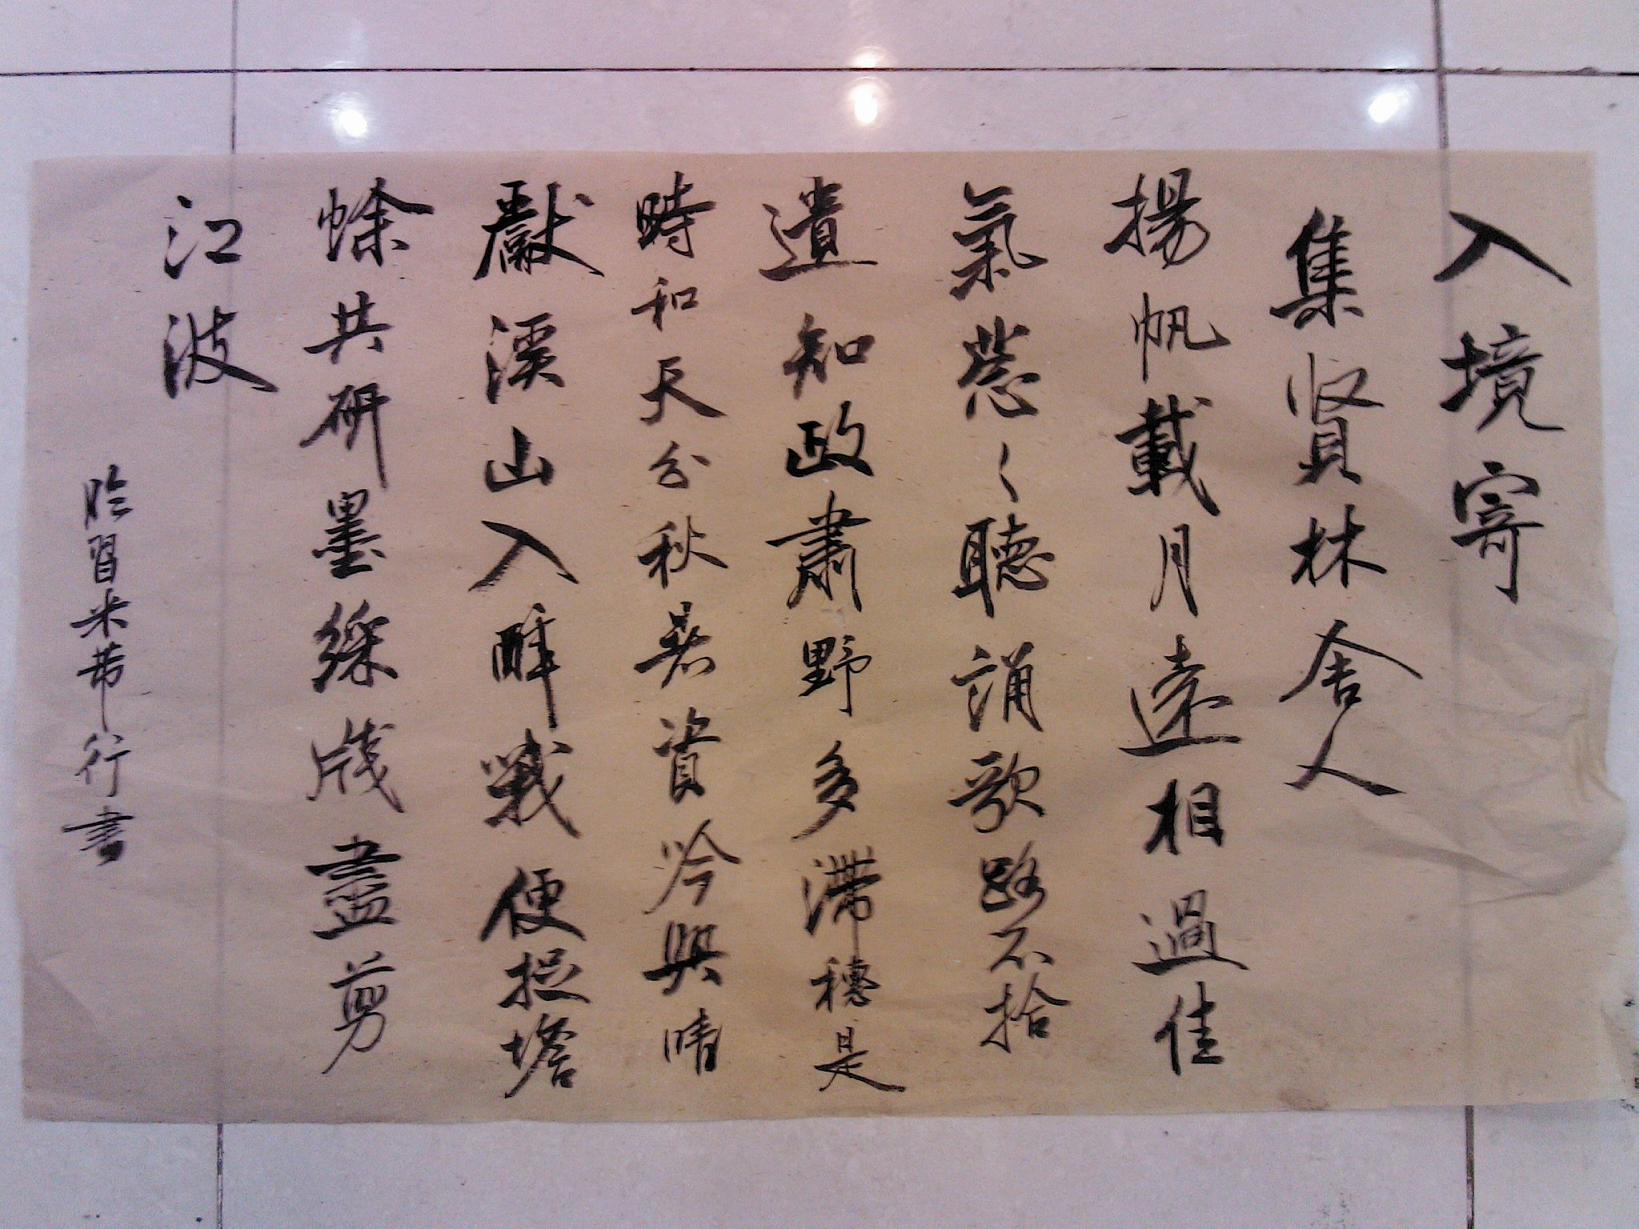 入境寄
集賢林舍人
揚帆載月遠相過佳
氣葱〻聽誦歌路不拾
遺知政肅野多滯穗是
時和天分秋暑資吟興晴
獻溪山入醉戰便捉蟾
蜍共研墨綵牋盡剪
江波
臨習米芾行書